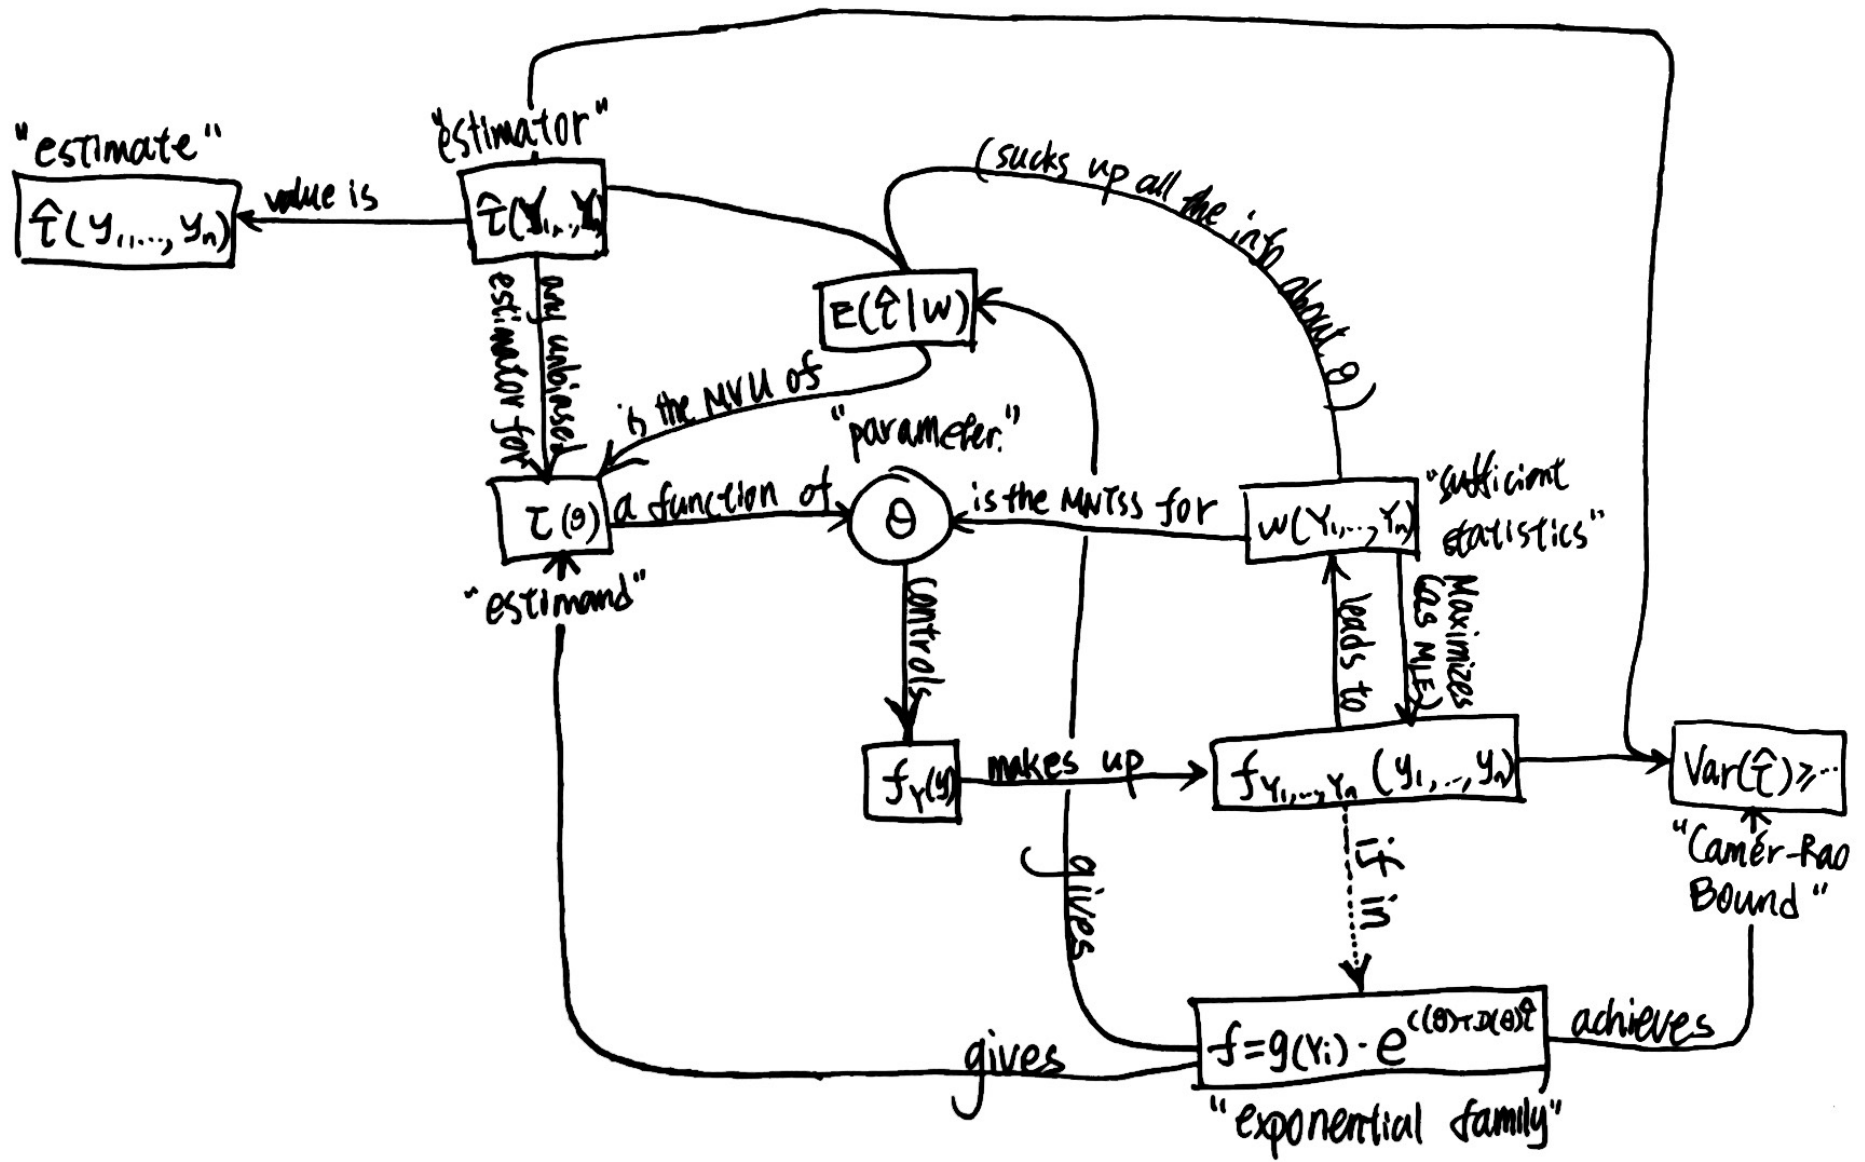 "estimate"
τ̂(y₁,..., yₙ)
value is
"estimator"
τ̂(Y₁,..,Yₙ)
any unbiased
estimator for
(sucks up all the info about θ)
E(τ̂|W)
is the MVU of
"parameter."
τ(θ)
a function of
θ
is the MNTSS for
W(Y₁,...,Yₙ)
"sufficient
statistics"
"estimand"
controls
leads to
Maximizes
(as MLE)
f_Y(y)
makes up
f_Y₁,...,Yₙ (y₁,..,yₙ)
Var(τ̂)≥...
"Camer-Rao
Bound"
gives
if in
gives
f=g(Yi)·e^C(θ)+D(θ)τ̂
achieves
"exponential family"